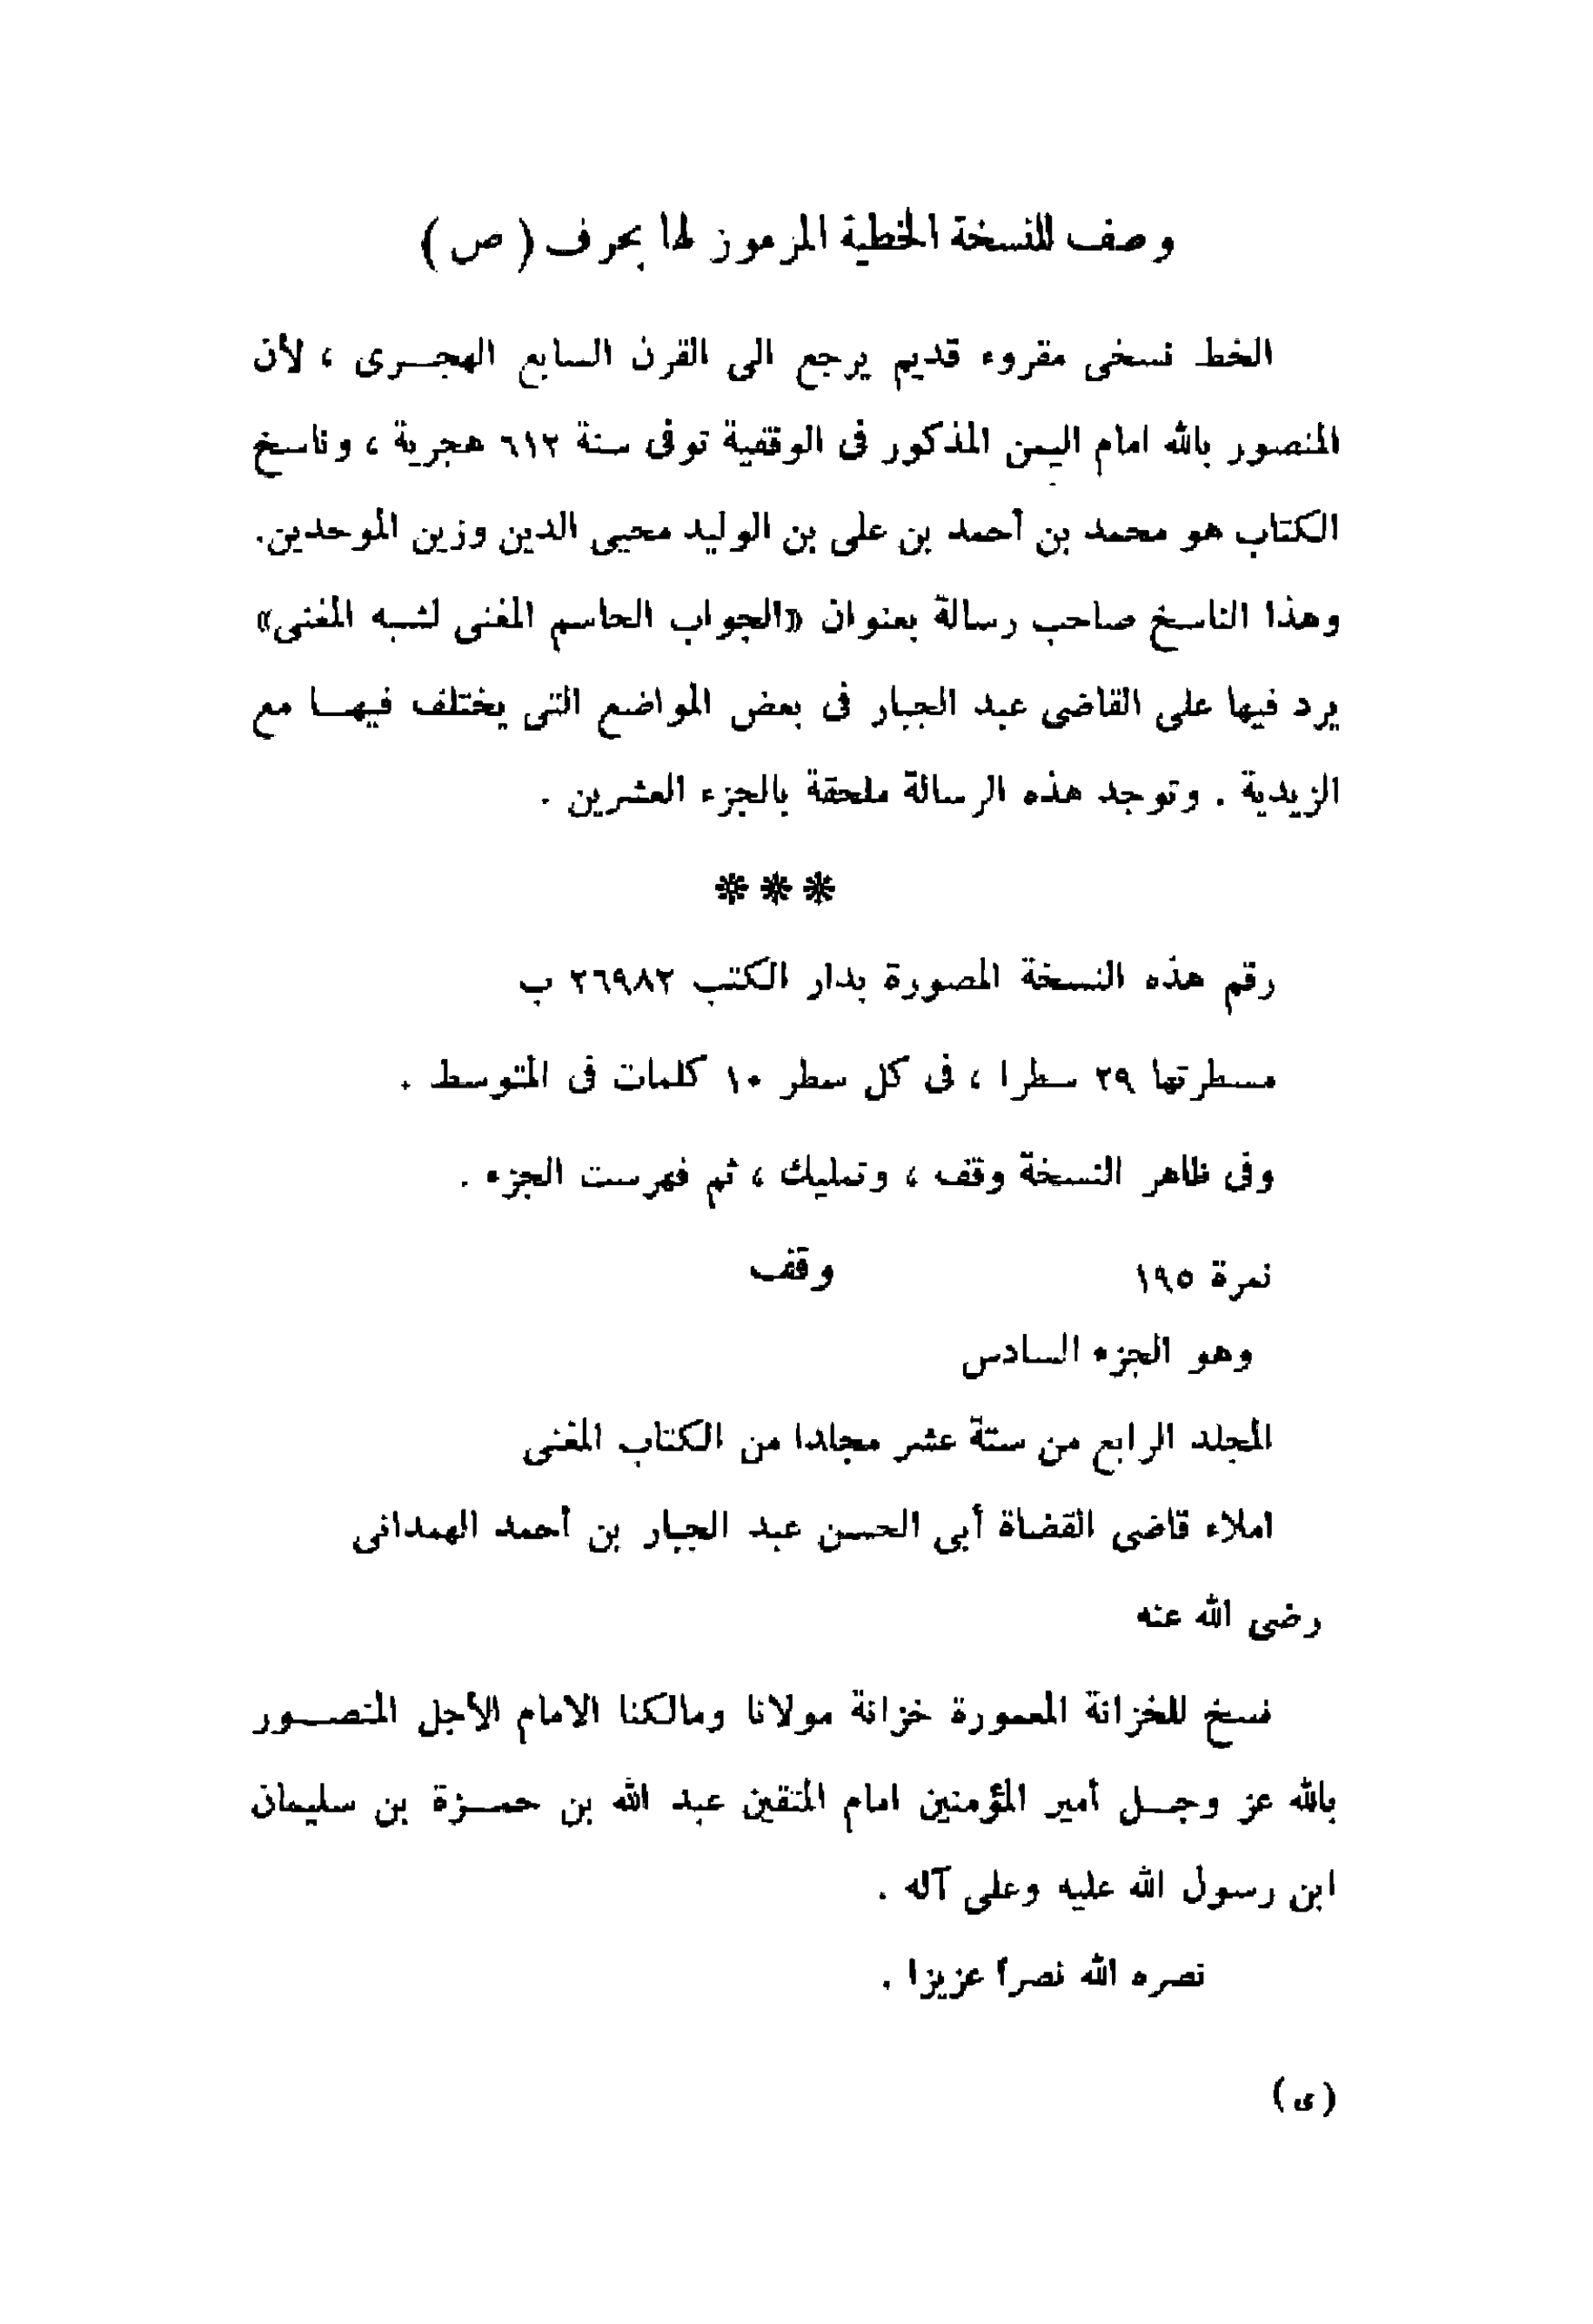 وصف للنسخة الخطية المرموز لها بحرف ( ص )
الخط نسخى مقروء قديم يرجع الى القرن السابع الهجرى ، لأن
المنصور بالله امام اليمن المذكور فى الوقفية توفى سنة ٦١٢ هجرية ، وناسخ
الكتاب هو محمد بن أحمد بن على بن الوليد محيى الدين وزين الموحدين.
وهذا الناسخ صاحب رسالة بعنوان «الجواب الحاسم المغنى لشبه المغنى»
يرد فيها على القاضى عبد الجبار فى بعض المواضع التى يختلف فيها مع
الزيدية . وتوجد هذه الرسالة ملحقة بالجزء العشرين .
***
رقم هذه النسخة المصورة بدار الكتب ٢٦٩٨٢ ب
مسطرتها ٢٩ سطرا ، فى كل سطر ١٠ كلمات فى المتوسط .
وفى ظاهر النسخة وقف ، وتمليك ، ثم فهرست الجزء .
نمرة ١٩٥ وقف
وهو الجزء السادس
المجلد الرابع من ستة عشر مجلدا من الكتاب المغنى
املاء قاضى القضاة أبى الحسن عبد الجبار بن أحمد الهمدانى
رضى الله عنه
نسخ للخزانة المعمورة خزانة مولانا ومالكنا الامام الأجل المنصور
بالله عز وجل أمير المؤمنين امام المتقين عبد الله بن حمزة بن سليمان
ابن رسول الله عليه وعلى آله .
نصره الله نصرا عزيزا .
(ى)